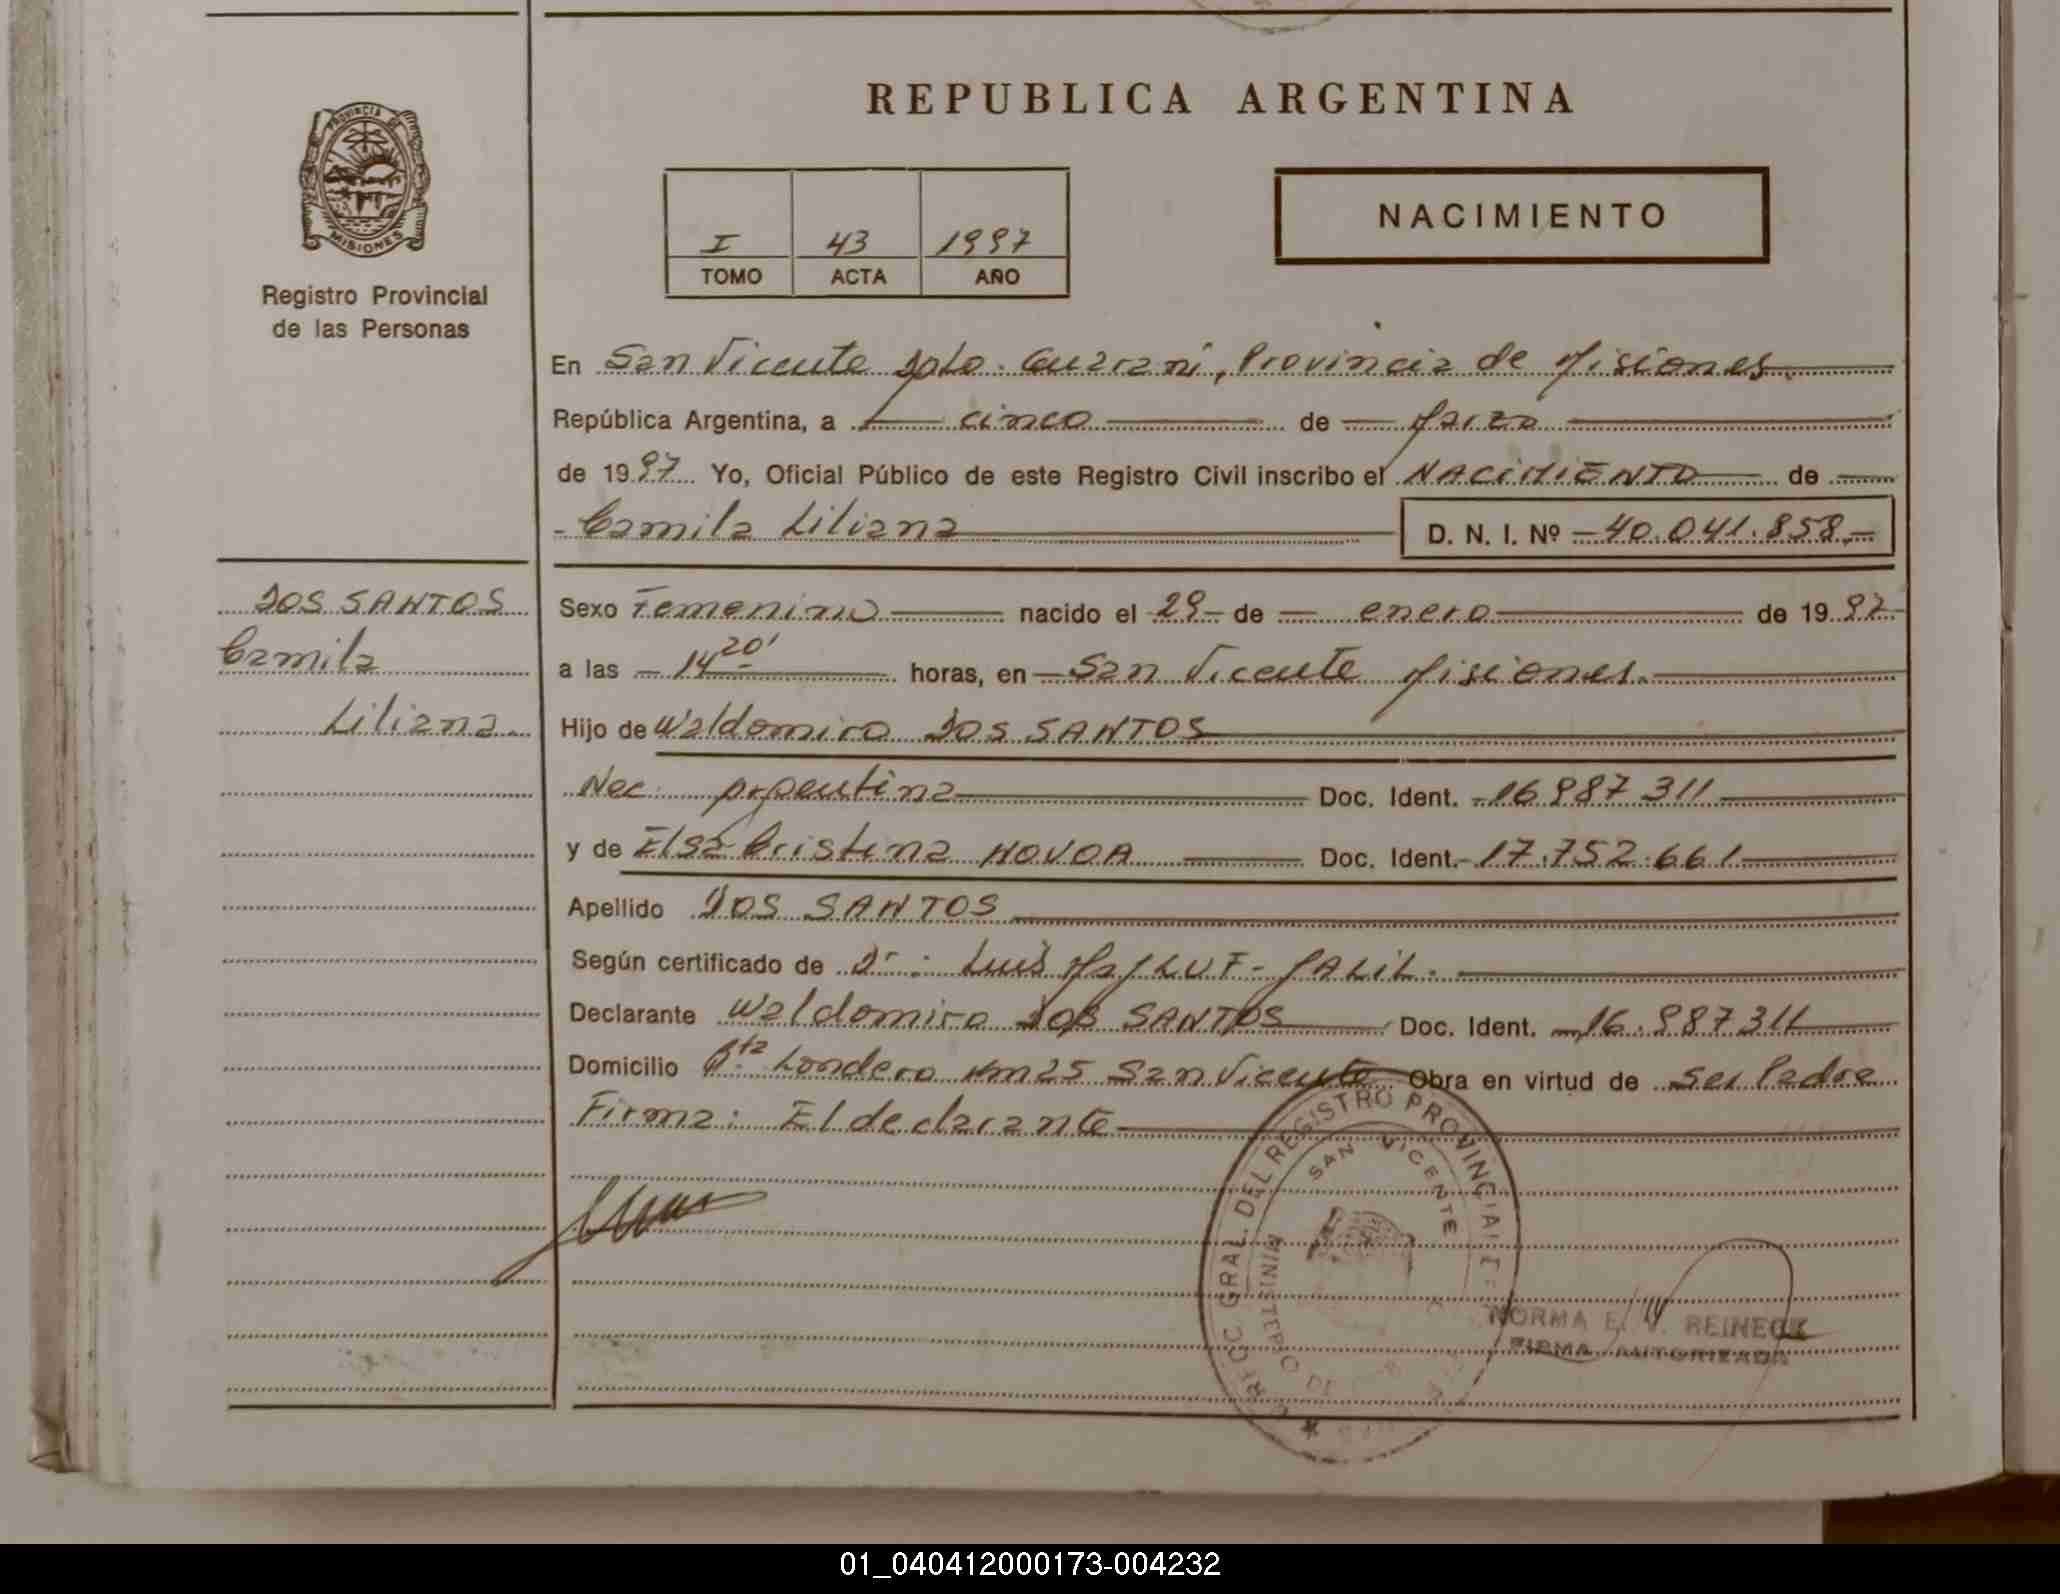 REPUBLICA ARGENTINA
PROVINCIA DE
MISIONES
Registro Provincial
de las Personas
I 43 1997
TOMO ACTA AÑO
NACIMIENTO
En San Vicente Dpto. Guaraní, Provincia de Misiones.
República Argentina, a cinco de Marzo
de 1997 Yo, Oficial Público de este Registro Civil inscribo el NACIMIENTO de
- Camila Liliana D. N. I. Nº - 40.041.858 -
DOS SANTOS
Camila
Liliana.
Sexo Femenino nacido el 29 de enero de 1997
a las - 14 20' horas, en San Vicente Misiones.
Hijo de Waldomiro DOS SANTOS
Nac. Argentina Doc. Ident. - 16 987 311
y de Elsa Cristina NOVOA Doc. Ident. - 17.752.661
Apellido DOS SANTOS
Según certificado de Dr: Luis MAJLUF - JALIL.
Declarante Waldomiro DOS SANTOS Doc. Ident. 16.987311
Domicilio Londero Km 25 San Vicente Obra en virtud de ser Padre
Firma: El declarante
GRAL. DEL REGISTRO PROVINCIAL
SAN VICENTE
MINISTERIO
NORMA E. V. REINECK
FIRMA AUTORIZADA
01_040412000173-004232